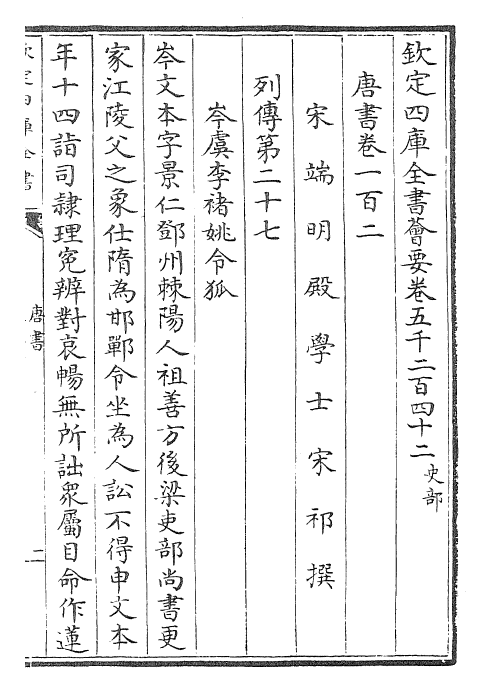 欽定四庫全書薈要卷五千二百四十二 史部
唐書卷一百二
宋端明殿學士宋祁撰
列傳第二十七
岑虞李褚姚令狐
岑文本字景仁鄧州棘陽人祖善方後梁吏部尚書更
家江陵父之象仕隋為邯鄲令坐為人訟不得申文本
年十四詣司隸理寃辨對哀暢無所詘衆屬目命作蓮
欽定四庫全書
唐書
二